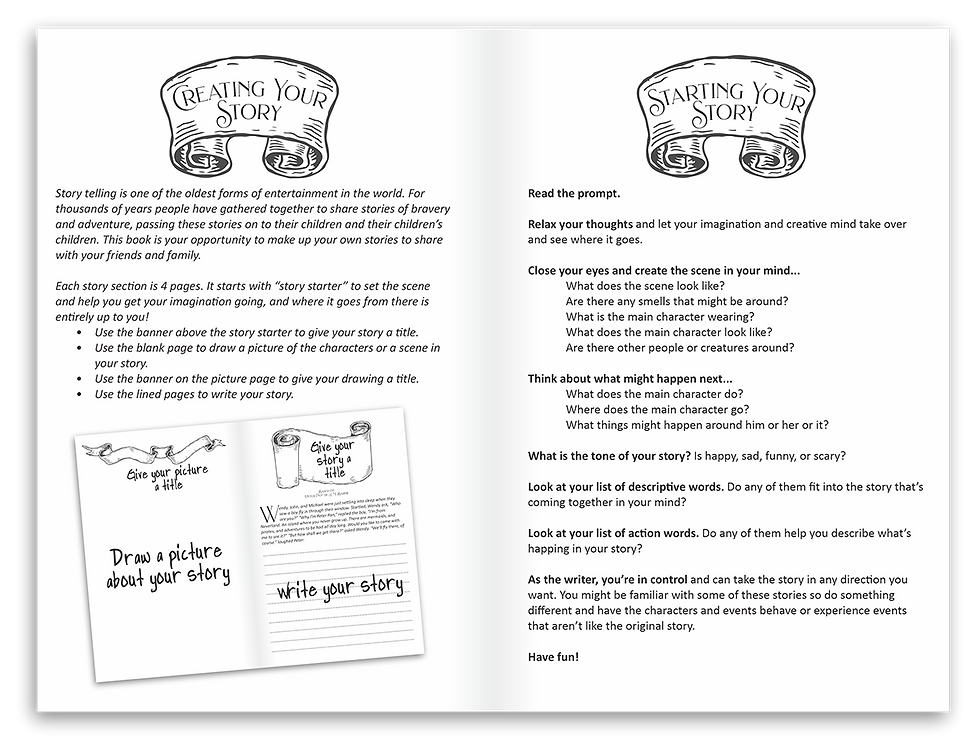 CREATING YOUR
STORY
Story telling is one of the oldest forms of entertainment in the world. For
thousands of years people have gathered together to share stories of bravery
and adventure, passing these stories on to their children and their children's
children. This book is your opportunity to make up your own stories to share
with your friends and family.
Each story section is 4 pages. It starts with "story starter" to set the scene
and help you get your imagination going, and where it goes from there is
entirely up to you!
• Use the banner above the story starter to give your story a title.
• Use the blank page to draw a picture of the characters or a scene in
your story.
• Use the banner on the picture page to give your drawing a title.
• Use the lined pages to write your story.
Give your picture
a title
Draw a picture
about your story
Give your
story a
title
Wendy, John, and Michael were just settling into sleep when they
saw a boy fly in through their window. Startled, Wendy ask, "Who
are you?" "Why I'm Peter Pan," replied the boy, "I'm from
Neverland. An island where you never grow up. There are mermaids, and
pirates, and adventures to be had all day long. Would you like to come with
me to see it?" "But how shall we get there?" asked Wendy. "We'll fly there, of
course." laughed Peter.
write your story
STARTING YOUR
STORY
Read the prompt.
Relax your thoughts and let your imagination and creative mind take over
and see where it goes.
Close your eyes and create the scene in your mind...
What does the scene look like?
Are there any smells that might be around?
What is the main character wearing?
What does the main character look like?
Are there other people or creatures around?
Think about what might happen next...
What does the main character do?
Where does the main character go?
What things might happen around him or her or it?
What is the tone of your story? Is happy, sad, funny, or scary?
Look at your list of descriptive words. Do any of them fit into the story that's
coming together in your mind?
Look at your list of action words. Do any of them help you describe what's
happening in your story?
As the writer, you're in control and can take the story in any direction you
want. You might be familiar with some of these stories so do something
different and have the characters and events behave or experience events
that aren't like the original story.
Have fun!